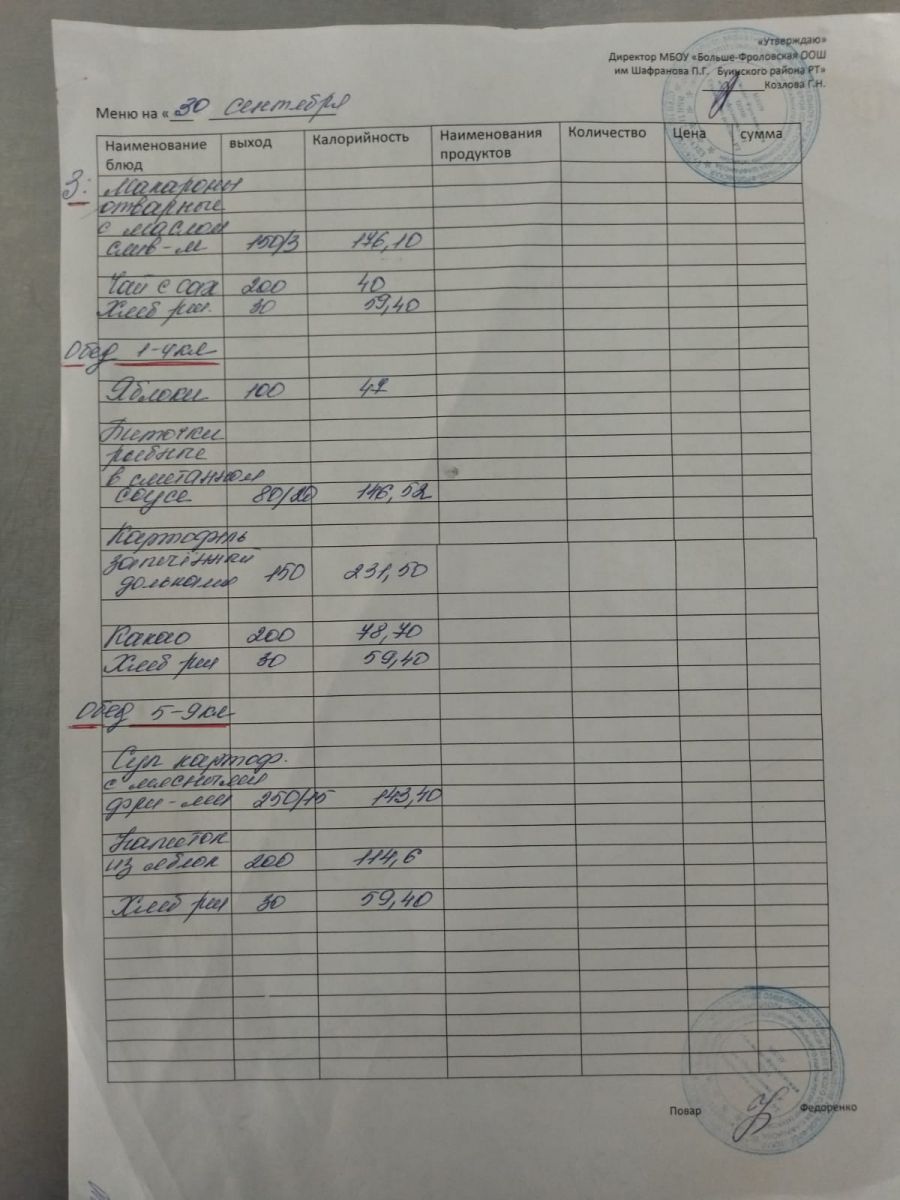 «Утверждаю»
Директор МБОУ «Больше-Фроловская ООШ
им Шафранова П.Г. Буинского района РТ»
Козлова Г.Н.
Меню на « 30 сентября
Наименование блюд выход Калорийность Наименования продуктов Количество Цена сумма
З: Макароны
отварные
с маслом
слив-м 150/3 176,10
Чай с сах 200 40
Хлеб рж. 30 59,40
Обед 1-4кл
Яблоки 100 47
Биточки
рыбные
в сметанном
соусе 80/20 146,52
Картофель
запечённый
дольками 150 231,50
Какао 200 78,70
Хлеб рж 30 59,40
Обед 5-9кл
Суп картоф.
с мясными
фри-ми 250/15 143,40
Напиток
из яблок 200 114,6
Хлеб рж 30 59,40
Повар Федоренко